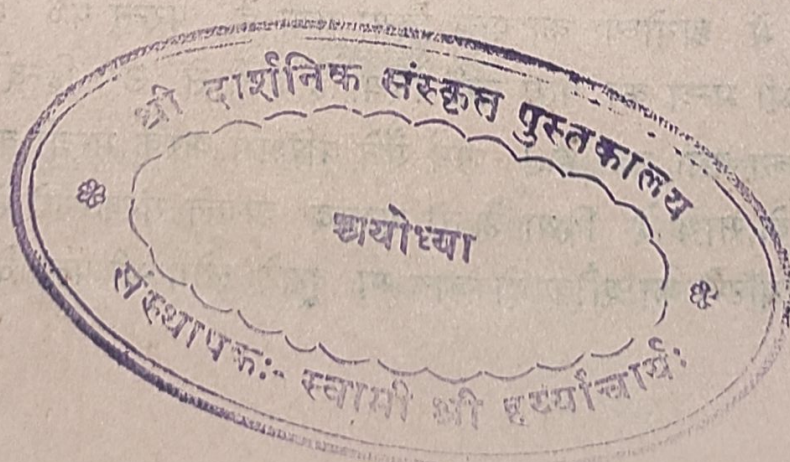 श्री दार्शनिक संस्कृत पुस्तकालय
अयोध्या
संस्थापक:- स्वामी श्री हर्य्याचार्य: